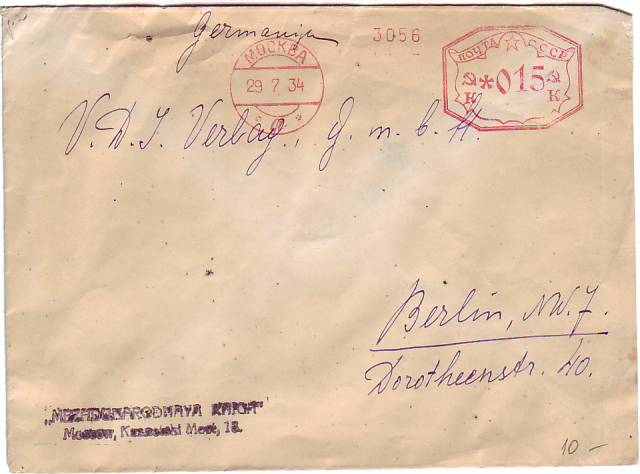 Germania
3056
МОСКВА
29 7 34
ПОЧТА СССР
*015
К К
V.D.I. Verlag, G.m.b.H.
Berlin, NW.7.
Dorotheenstr. 40.
„MEZHDUNARODNAYA KNIGA"
Moscow, Kusnetski Most, 18.
10 –